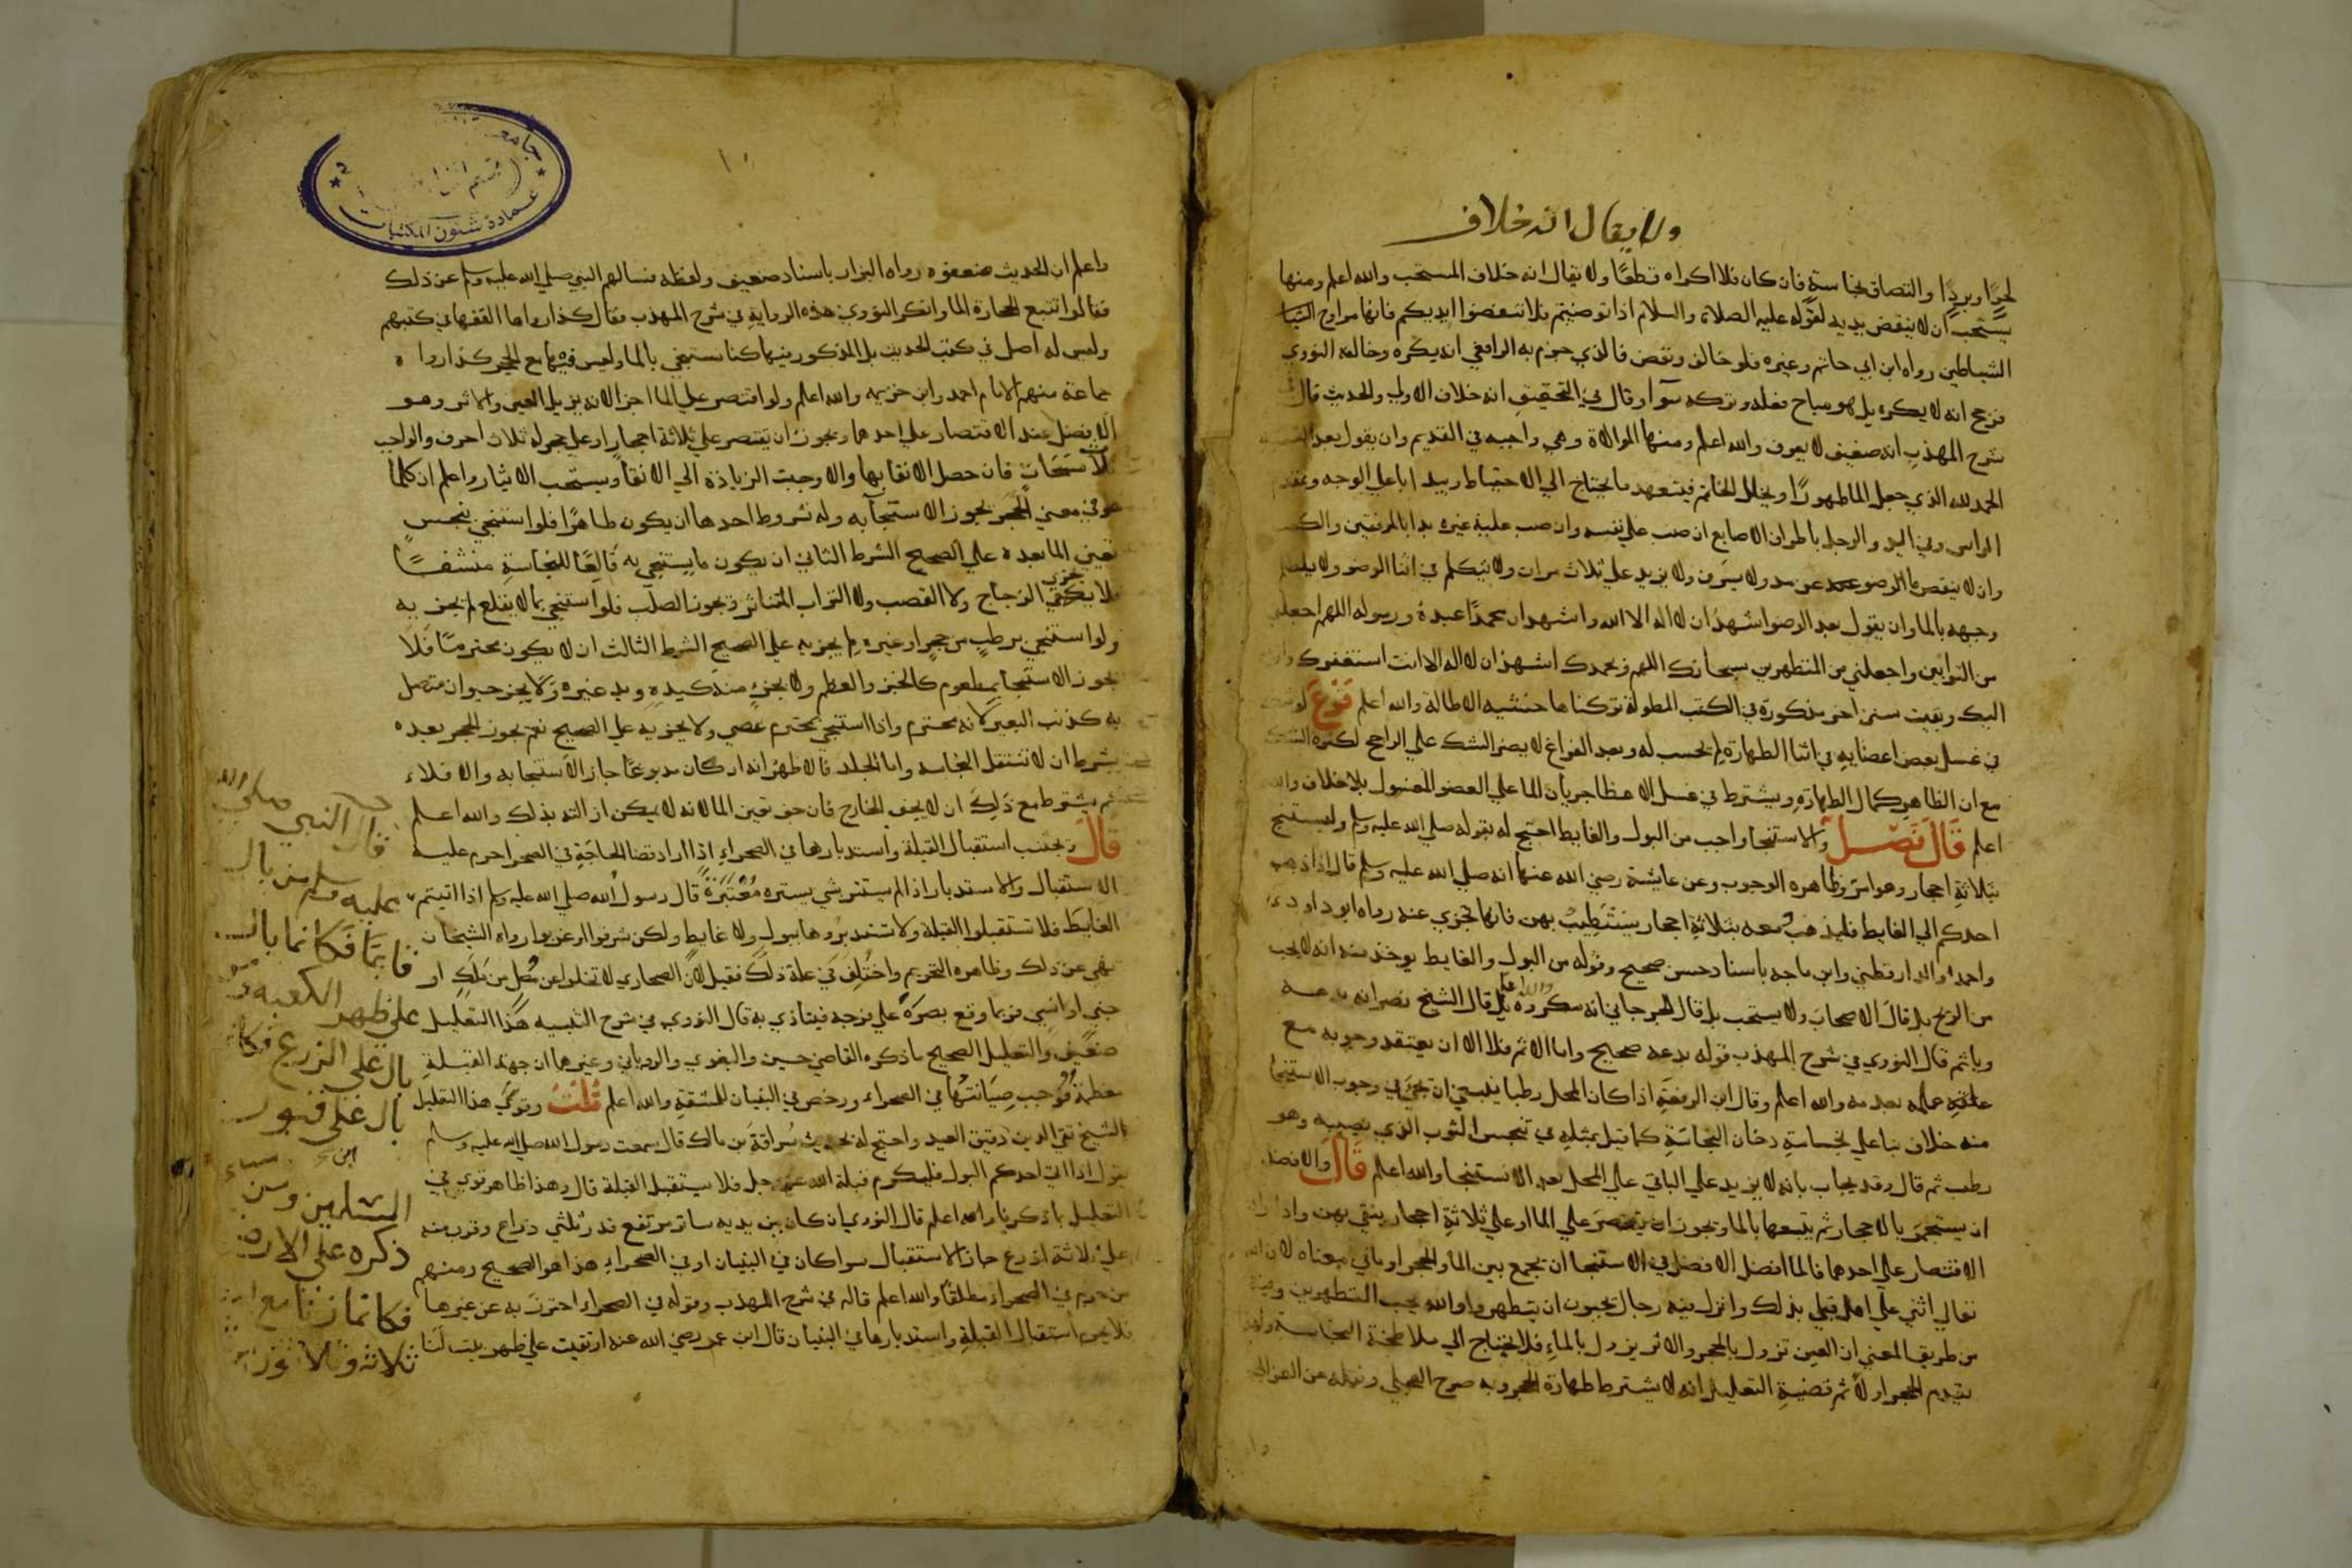 ولا يقال انه خلاف
لحرٍّ او بردٍ او التصاق نجاسةٍ فان كان فلا اكراه قطعًا ولا يقال انه خلاف المستحب والله اعلم ومنها
يستحب ان لا ينفض يديه لقوله عليه الصلاة والسلام اذا توضيتم فلا تنفضوا ايديكم فانها مراوح
الشياطين رواه ابن ابي حاتم وغيره فلو خالف ونفض فالذي جزم به الرافعي انه يكره وخالفه النووي
فرجح انه لا يكره بل هو مباح فعله وتركه سوآ وقال في التحقيق انه خلاف الاولي والحديث قال في
شرح المهذب انه ضعيف لا يعرف والله اعلم ومنها الموالاة وهي واجبه في القديم وان يقول بعد
الحمد لله الذي جعل الما طهورًا ويخلل الخاتم فيتعهد ما يحتاج الي الاحتياط ويبدا باعلي الوجه
الراس وفي اليد والرجل باطراف الاصابع ان صب علي نفسه وان صب عليه غيره بدا بالمرفقين
وان لا ينقص ما الوضو عن مد ولا يسرف ولا يزيد علي ثلاث مرات ولا يتكلم في اثنا الوضو ولا يلطم
وجهه بالما وان يقول بعد الوضو اشهد ان لا اله الا الله واشهد ان محمدًا عبده ورسوله اللهم اجعلني
من التوابين واجعلني من المتطهرين سبحانك اللهم وبحمدك اشهد ان لا اله الا انت استغفرك
اليك وبقيت سنن اخر مذكورة في الكتب المطولة تركناها خشيه الاطالة والله اعلم فَرْعٌ
في غسل بعض اعضايه في اثنا الطهارة لم يحسب له وبعد الفراغ لا يضر الشك علي الراجح لكثرة الشك
مع ان الظاهر كمال الطهارة ويشترط في غسل الاعظا جريان الما علي العضو المغسول بلا خلاف والله
اعلم قَالَ فَصْل والاستنجا واجب من البول والغايط احتج له بقوله صلي الله عليه وسلم وليستنج
بثلاثة احجار وهو امر وظاهره الوجوب وعن عايشة رضي الله عنها انه صلي الله عليه وسلم قال اذا ذهب
احدكم الي الغايط فليذهب معه بثلاثة احجار يستطيب بهن فانها تجزي عنه رواه ابو داود
واحمد والدارقطني وابن ماجه باسناد حسن صحيح وقوله من البول والغايط يوخذ منه انه لا يجب
من الريح بل قال الاصحاب ولا يستحب بل قال الجرجاني انه مكروه بل قال الشيخ نصر انه بدعه
وياثم قال النووي في شرح المهذب قوله بدعه صحيح واما الاثم فلا الا ان يعتقد وجوبه مع
علمه بعدمه والله اعلم وقال ابن الرفعة اذا كان المحل رطبا ينبغي ان يجي في وجوب الاستنجا
منه خلاف بنا علي نجاسة دخان النجاسة كما قيل بمثله في تنجس الثوب الذي يصيبه وهو
رطب ثم قال وقد يجاب بانه لا يزيد علي الباقي علي المحل بعد الاستنجا والله اعلم قَالَ والافضل
ان يستجمر بالاحجار ثم يتبعها بالما ويجوز ان يقتصر علي الما او علي ثلاثة احجار ينقي بهن واذا اراد
الاقتصار علي احدهما فالما افضل الافضل في الاستنجا ان يجمع بين الما والحجر او ما في معناه لان الله
تعالي اثني علي اهل قبا بذلك وانزل فيه رجال يحبون ان يتطهروا والله يحب المتطهرين
من طريق المعني ان العين تزول بالحجر والاثر يزول بالماء فلا يحتاج الي ملاطخة النجاسة
يقدم الحجر اولًا ثم قضية التعليل انه لا يشترط طهارة الحجر وبه صرح العجلي ونقله عن الغزالي
واعلم ان الحديث ضعفوه رواه البزار باسناد ضعيف ولفظه فسالهم النبي صلي الله عليه وسلم عن ذلك
فقالوا نتبع الحجارة الما وانكر النووي هذه الرواية في شرح المهذب فقال كذا رواها الفقها في كتبهم
وليس له اصل في كتب الحديث بل المذكور فيها كنا نستنجي بالما وليس فيها مع الحجر كذا رواه
جماعة منهم الامام احمد وابن خزيمه والله اعلم ولو اقتصر علي الما اجزا لانه يزيل العين والاثر وهو
الافضل عند الاقتصار علي احدهما ويجوز ان يقتصر علي ثلاثة احجار او علي حجر له ثلاث احرف والواجب
ثلاث مسحات فان حصل الانقا بها والا وجبت الزيادة الي الانقا ويستحب الايتار واعلم ان كلما
هو في معني الحجر يجوز الاستنجآ به وله شروط احدها ان يكون طاهرًا فلو استنجي بنجسٍ
تعين الما بعده علي الصحيح الشرط الثاني ان يكون ما يستنجي به قالعًا للنجاسة منشفًا
فلا يجزي الزجاج ولا القصب ولا التراب المتناثر ويجوز الصلب فلو استنجي بما لا يقلع لم يجزيه
ولو استنجي برطبٍ من حجر او غيره لم يجزيه علي الصحيح الشرط الثالث ان لا يكون محترمًا فلا
يجوز الاستنجا بمطعوم كالخبز والعظم ولا بجزءٍ منه كيده ويد غيره ولا بجزء حيوان متصل
به كذنب البعير لانه محترم واذا استنجي بمحترم عصي ولا يجزيه علي الصحيح نعم يجوز الحجر بعده
بشرط ان لا تنتقل النجاسه واما الجلد فالاظهر انه ان كان مدبوغًا جاز الاستنجا به والا فلا
ثم يشترط مع ذلك ان لا يجف الخارج فان جف تعين الما لانه لا يمكن ازالته بذلك والله اعلم
قَالَ ويجتنب استقبال القبلة واستدبارها في الصحراء اذا اراد قضا الحاجة في الصحرا حرم عليه
الاستقبال والاستدبار اذا لم يستتر بشي يستره مُعْتَبَرَةً قال رسول الله صلي الله عليه وسلم اذا اتيتم
الغايط فلا تستقبلوا القبلة ولا تستدبروها ببول ولا غايط ولكن شرقوا او غربوا رواه الشيخان
نهي عن ذلك وظاهره التحريم واختُلِفَ في علة ذلك فقيل لان الصحاري لا تخلوا عن مصل من ملك او
جني او انسي فربما وقع بصره علي فرجه فيتاذي به قال النووي في شرح التنبيه هذا التعليل
ضعيف والتعليل الصحيح ما ذكره القاضي حسين والبغوي والروياني وغيرهم ان جهة القبلة
معظمة فوجب صيانتها في الصحراء ورخص في البنيان للمشقة والله اعلم قُلْتُ وقوي هذا التعليل
الشيخ تقي الدين ابن دقيق العيد واحتج له بحديث سُراقة بن مالك قال سمعت رسول الله صلي الله عليه وسلم
يقول اذا اتي احدكم البول فليكرم قبلة الله عز وجل فلا يستقبل القبلة قال وهذا ظاهر قوي في
التعليل بما ذكرناه والله اعلم قال النووي ان كان بين يديه ساتر مرتفع قدر ثلثي ذراع وقرب منه
علي ثلاثة اذرع جاز الاستقبال سوا كان في البنيان او في الصحراء هذا هو الصحيح ومنهم
من حرم في الصحراء مطلقًا والله اعلم قاله في شرح المهذب وقوله في الصحراء احترز به عن غيرها
فلا يحرم استقبال القبلة واستدبارها في البنيان قال ابن عمر رضي الله عنه ارتقيت علي ظهر بيت لنا
قال النبي صلى الله
عليه وسلم من بال
قايمًا فكانما بال
على ظهر الكعبه
بال على الزرع فكا
بال على قبور
المسلمين ومن
ذكره على الارض
فكانما زنا مع
ثلاثه وثلاثون
جامعة
عمادة شئون المكتبات